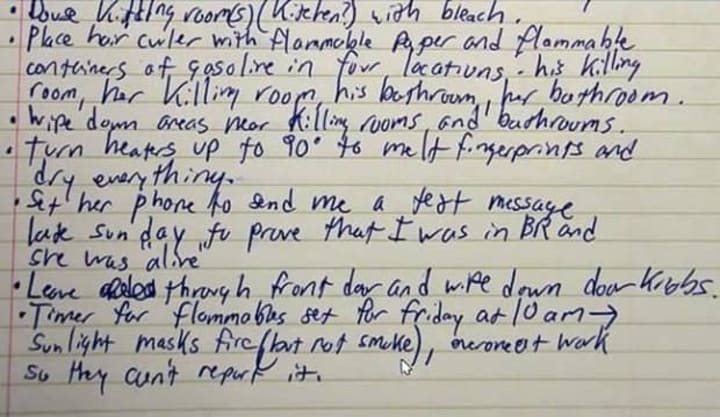 • Douse killing room(s) (kitchen?) with bleach.
• Place hair curler with flammable paper and flammable
containers of gasoline in four locations - his killing
room, her killing room, his bathroom, her bathroom.
• Wipe down areas near killing rooms and bathrooms.
• Turn heaters up to 90° to melt fingerprints and
dry everything.
• Set her phone to send me a text message
late Sunday "to prove that I was in BR and
she was alive"
• Leave through front door and wipe down door knobs.
• Timer for flammables set for friday at 10am →
Sunlight masks fire (but not smoke), everone at work
so they can't report it.